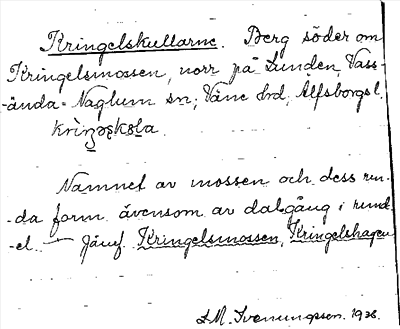 Kringelskullarne. Berg söder om
Kringelsmossen, norr på Lunden, Vass-
-ända-Naglum sn; Väne hrd; Älfsborgs l.
Namnet av mossen och dess run-
-da form ävensom av dalgång i rund-
-el. — Jämf. Kringelsmossen, Kringelshagen
1938.